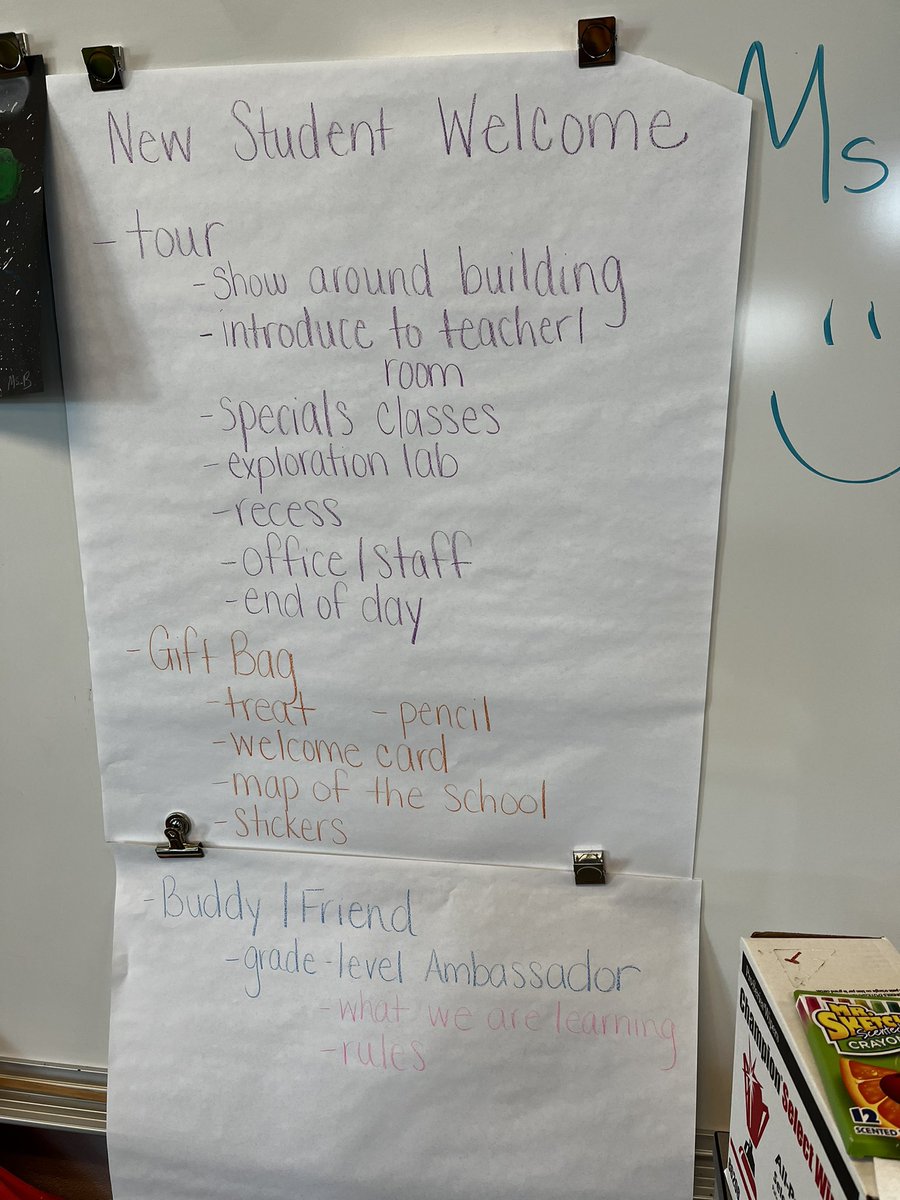 New Student Welcome
- tour
- Show around building
- introduce to teacher/
room
- Specials classes
- exploration lab
- recess
- office/staff
- end of day
- Gift Bag
- treat - pencil
- welcome card
- map of the school
- Stickers
- Buddy/Friend
- grade-level Ambassador
- what we are learning
- rules
Ms
Ms.B
Champion Select Wh
MR.
SKETCH
Scented
CRAYO
12
SCENTED